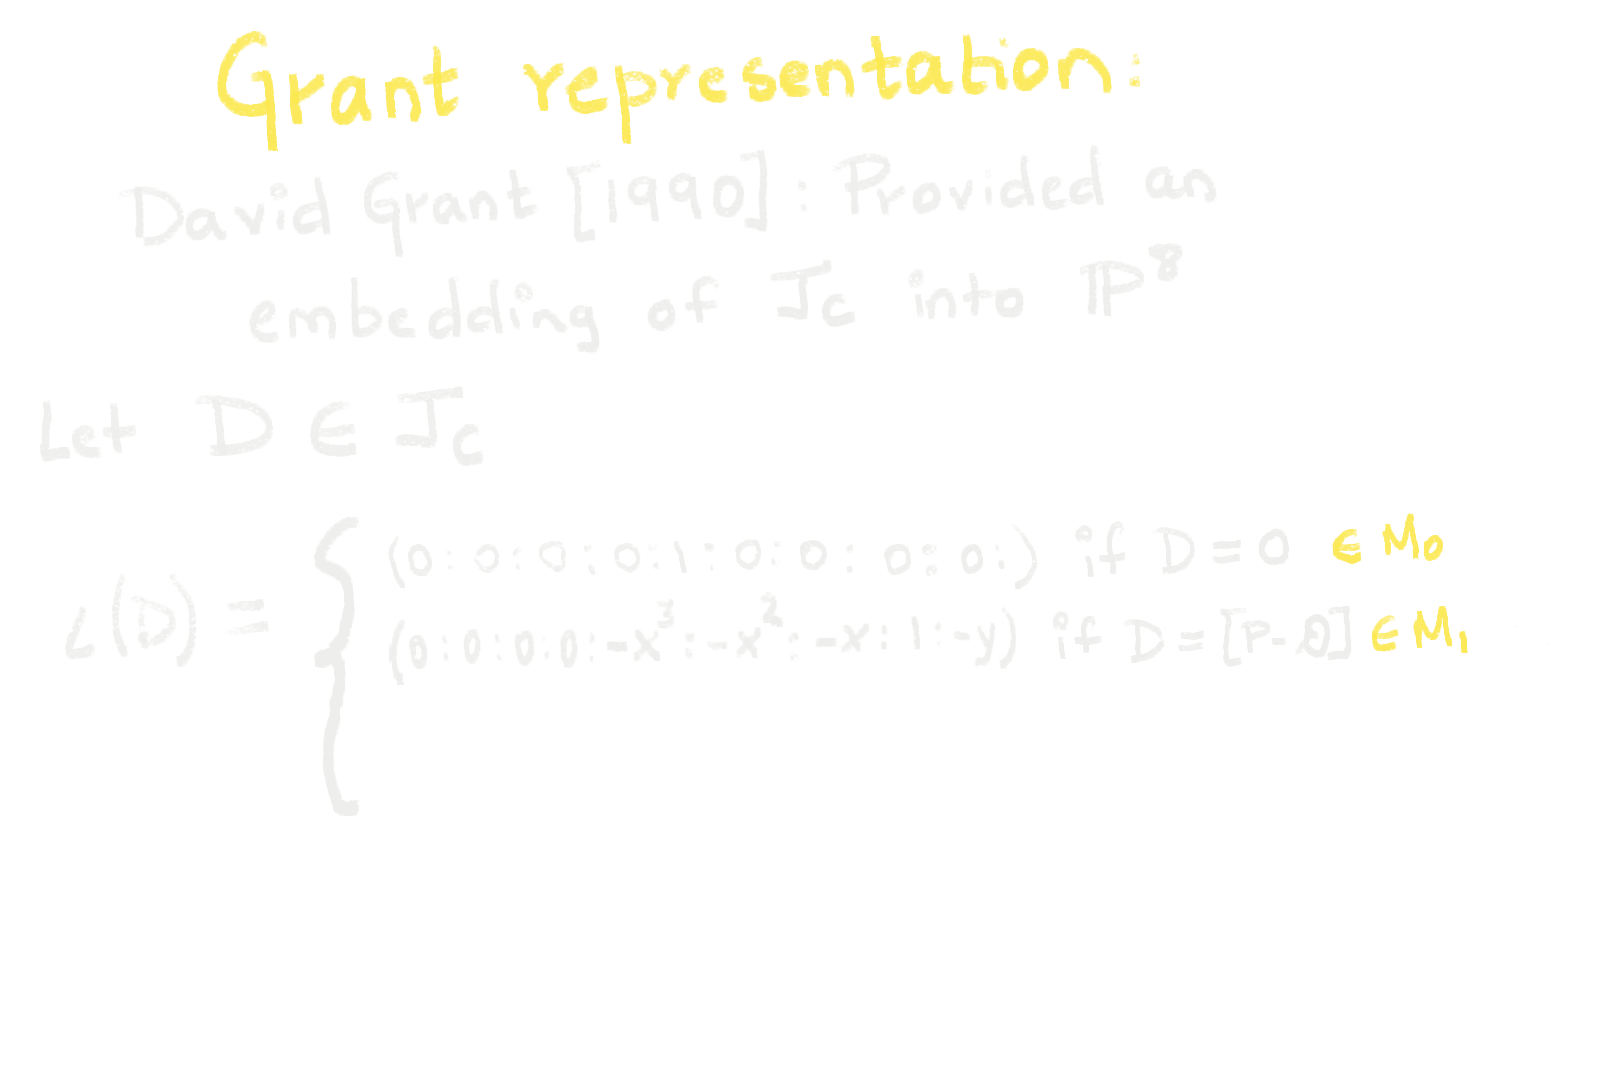 Grant representation:
David Grant [1990] : Provided an
embedding of J_C into ℙ^8
Let D ∈ J_C
L(D) = {
(0:0:0:0:1:0:0:0:0:) if D = 0 ∈ M_0
(0:0:0:0:-x^3:-x^2:-x:1:-y) if D = [P-∞] ∈ M_1